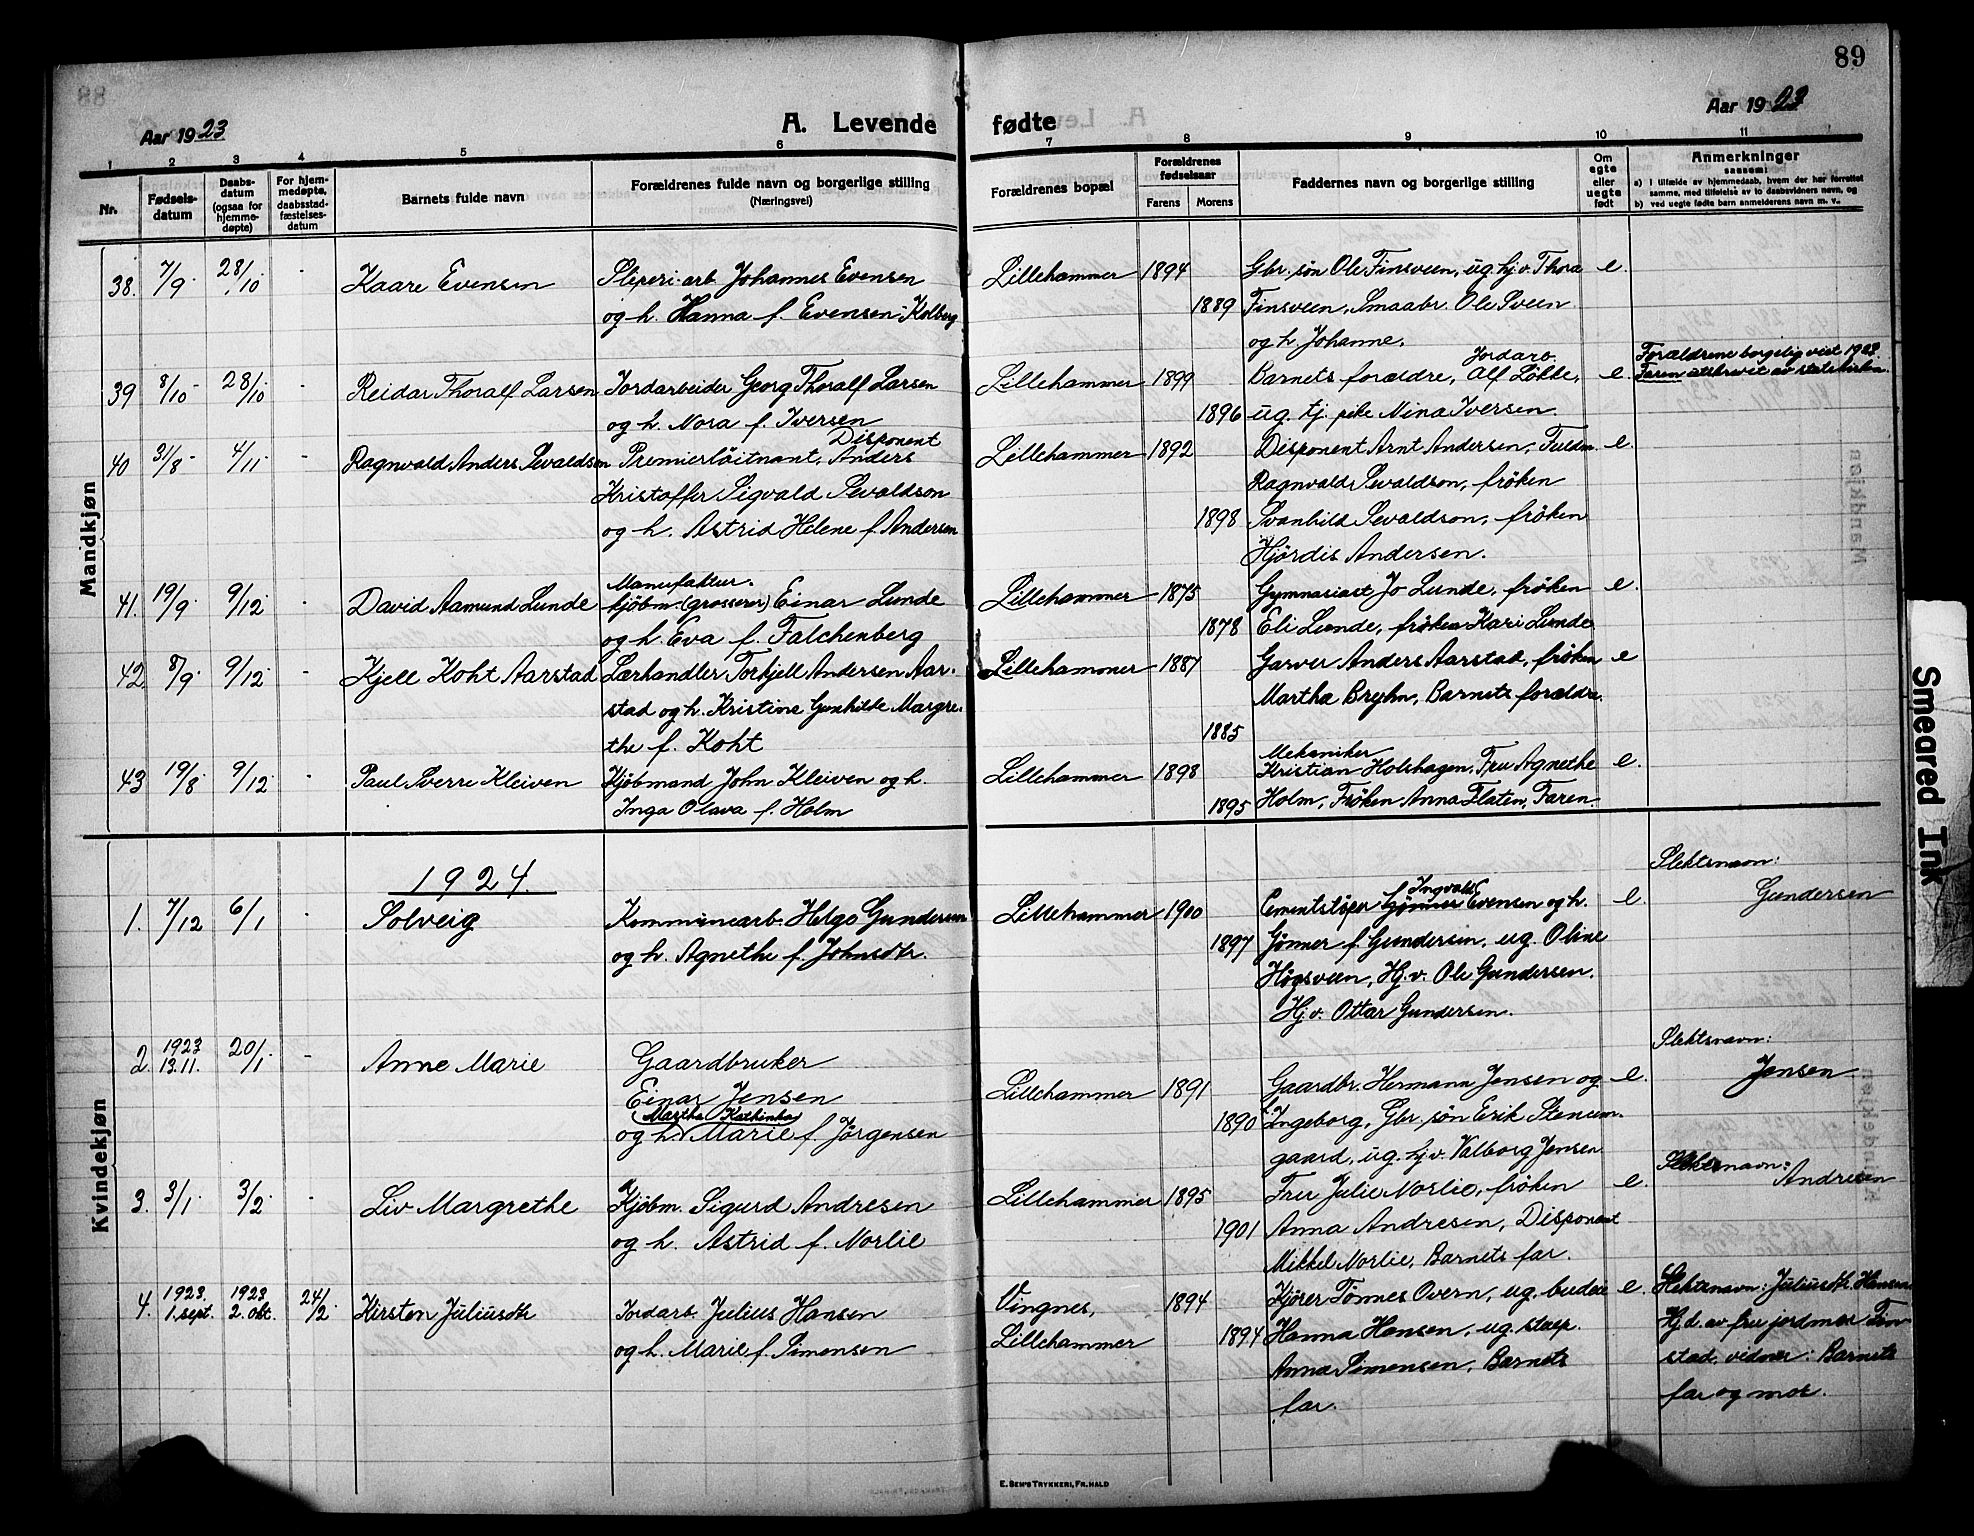 89
Aar 1923
A. Levende fødte
Aar 1923
1 2 3 4 5 6 7 8 9 10 11
Nr.
Fødsels-
datum
Daabs-
datum
(ogsaa for
hjemme-
døpte)
For hjem-
medøpte,
daabsstad-
fæstelses-
datum
Barnets fulde navn
Forældrenes fulde navn og borgerlige stilling
(Næringsvei)
Forældrenes bopæl
Forældrenes
fødselsaar
Farens Morens
Faddernes navn og borgerlige stilling
Om
egte
eller
uegte
født
Anmerkninger
saasom:
a) i tilfælde av hjemmedaab, hvem der har forrettet
samme, med tilføielse av to daabsvidners navn, og
b) ved uegte fødte barn anmelderens navn m. v.
Mandkjøn
38. 7/9 28/10 - Kaare Evensen
Sliperi-arb. Johannes Evensen
og h. Hanna f. Evensen-Kolberg
Lillehammer 1894
1889
Gbr. søn Ole Finsveen, ug. hj.v. Thora
Finsveen, Smaabr. Ole Sveen
og h. Johanne.
e.
39 8/10 - 28/10 - Reidar Thoralf Larsen
Jordarbeider Georg Thoralf Larsen
og h. Nora f. Iversen
Lillehammer 1899
1896
Jordarb.
Barnets forældre, Alf Løkke,
ug. tj. pike Nina Iversen.
e.
Forældrene borgelig viet 1923.
Faren utskrevet av statskirken.
40 31/8 - 4/11 - Ragnvald Anders Sevaldson
Disponent
Premierløitnant, Anders
Kristoffer Sigvald Sevaldson
og h. Astrid Helene f. Andersen
Lillehammer 1892
1898
Disponent Arnt Andersen, Fuldm.
Ragnvald Sevaldson, frøken
Svanhild Sevaldson, frøken
Hjørdis Andersen.
e.
41. 19/9. 9/12 - David Aamund Lunde
Manufaktur-
kjøbm. (grosserer) Einar Lunde
og h. Eva f. Falchenberg
Lillehammer 1875
1878
Gymnasiast Jo Lunde, frøken
Eli Lunde, frøken Kari Lunde
e.
42 8/9. 9/12 - Kjell Koht Aarstad
Lærhandler Torkjell Andersen Aar-
stad og h. Kristine Gunhilde Margre-
the f. Koht
Lillehammer 1887
1885
Garver Anders Aarstad, frøken
Martha Bryhn, Barnets forældre.
e
43 19/8. 9/12 - Paul Sverre Kleiven
Kjøbmand John Kleiven og h.
Inga Olava f. Holm
Lillehammer 1898
1895
Mekaniker
Kristian Holshagen, Fru Agnethe
Holm, Frøken Anna Flaten, Faren
e.
Kvindekjøn
1924.
1. 7/12 6/1 - Solveig
Kommunearb. Helge Gundersen
og h. Agnethe f. Johnsdtr.
Lillehammer 1900
1897
Ingvald
Cementstøper Gønner Evensen og h.
Gønner f. Gundersen, ug. Oline
Høgsveen, Hj.v. Ole Gundersen.
Hj.v. Ottar Gundersen.
e.
Slektsnavn:
Gundersen
2. 1923 13.11. 20/1 - Anne Marie
Gaardbruker
Einar Jensen
(Martha Kathinka)
og h. Marie f. Jørgensen
Lillehammer 1891
1890
Gaardbr. Hermann Jensen og
Ingeborg, Gbr. søn Erik Stenum-
gaard, ug. hj.v. Valborg Jensen
e.
Slektsnavn:
Jensen
3. 3/1. 3/2 - Liv Margrethe
Kjøbm. Sigurd Andresen
og h. Astrid f. Norlie
Lillehammer 1895
1901
Fru Julie Norlie, frøken
Anna Andresen, Disponent
Mikkel Norlie, Barnets far.
e.
Slektsnavn:
Andresen
4. 1923. 1. sept. 1923 2. okt. 24/2 Kirsten Juliusdtr
Jordarb. Julius Hansen
og h. Marie f. Simensen
Vingnes,
Lillehammer
1894
1894
Kjører Tønnes Overn, ug. budeie
Hanna Hansen, ug. stuep.
Anna Simensen, Barnets
far.
e.
Slektsnavn: Juliusdtr. Hansen
Hj.d. av fru jordmor Fin-
stad, vidner: Barnets
far og mor.
E. Sem's Trykkeri, Fr.hald
Smeared Ink